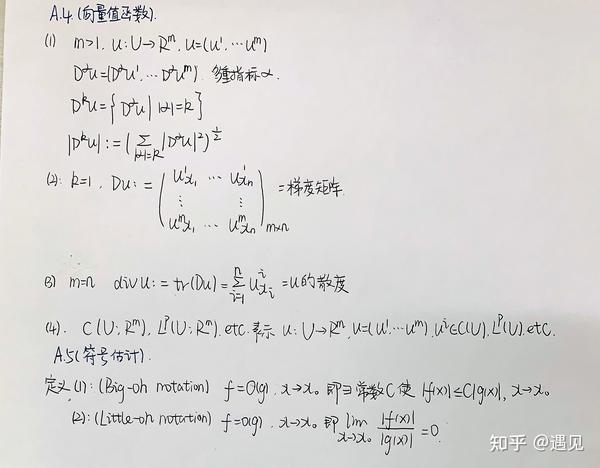 A.4.(向量值函数).
(1) m>1, u: U→Rᵐ, u=(u¹,⋯uᵐ)
Dᵅu=(Dᵅu¹,⋯Dᵅuᵐ). 多重指标α.
Dᵏu={Dᵅu | |α|=k}
|Dᵏu| := (∑_{|α|=k} |Dᵅu|²)^{1/2}
(2): k=1, Du: = ( u¹x₁ ⋯ u¹xₙ
⋮ ⋮
uᵐx₁ ⋯ uᵐxₙ )m×n =梯度矩阵.
(3) m=n div u: = tr(Du)=∑_{i=1}^{n} uⁱ_{xᵢ} =u的散度
(4). C(U; Rᵐ), Lᵖ(U; Rᵐ). etc. 表示 u: U→Rᵐ, u=(u¹⋯uᵐ), uⁱ∈C(U), Lᵖ(U). etc.
A.5(符号估计).
定义(1): (Big-oh notation) f=O(g). x→x₀ 即∃常数C使 |f(x)|≤C|g(x)|, x→x₀
(2): (Little-oh notation) f=o(g). x→x₀ 即 lim_{x→x₀} |f(x)|/|g(x)| =0.
知乎 @遇见